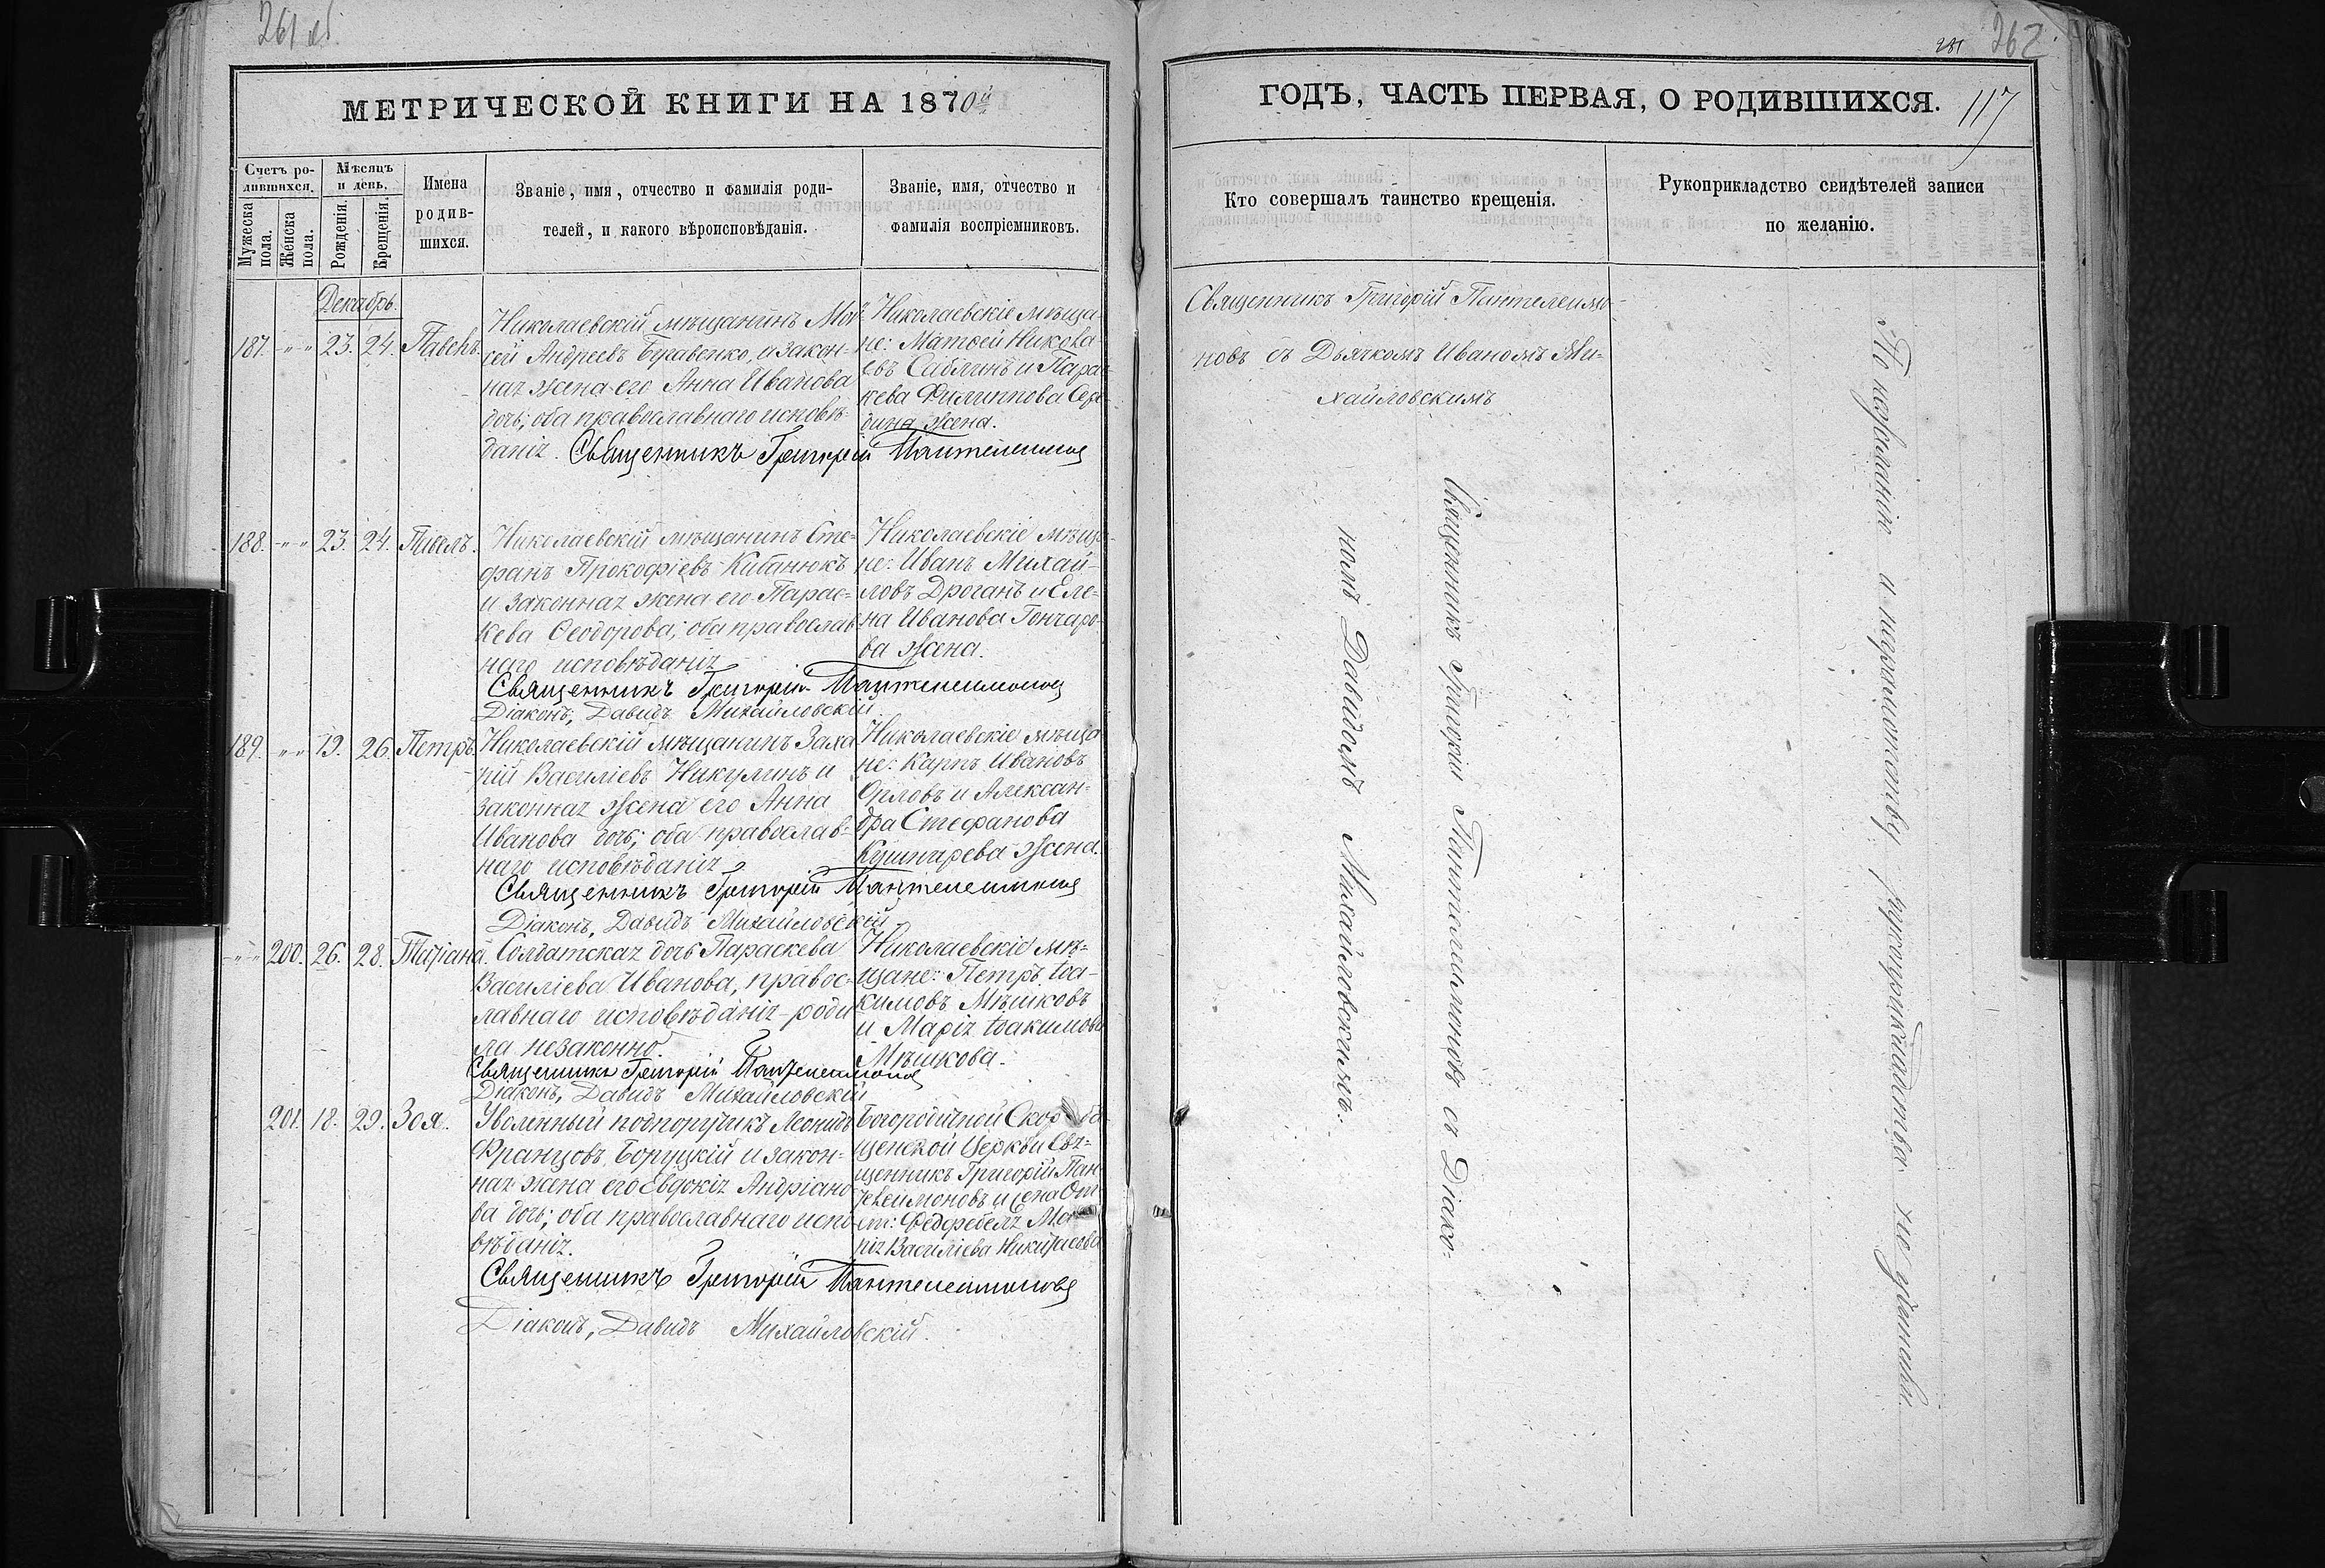 261 об
МЕТРИЧЕСКОЙ КНИГИ НА 1870й
Счетъ ро-
дившихся.
Мужеска
пола.
Женска
пола.
Мѣсяцъ
и день.
Рожденія.
Крещенія.
Имена
родив-
шихся.
Званіе, имя, отчество и фамилія роди-
телей, и какого вѣроисповѣданія.
Званіе, имя, отчество и
фамилія воспріемниковъ.
Декабрь.
187. - " - " 23. 24. Павелъ.
Николаевскій мѣщанинъ Мой-
сей Андреевъ Бугаенко, и закон-
ная жена его Анна Иванова
дочь; оба православнаго исповѣ-
данія. Священникъ Григорій Пантелеимоновъ
Николаевскіе мѣща-
не: Матѳей Никола-
евъ Саблинъ и Парас-
кева Филиппова Сере-
дина жена.
188. - " - " 23. 24. Павелъ.
Николаевскій мѣщанинъ Сте-
фанъ Прокофіевъ Кибанюкъ
и законная жена его Парас-
кева Ѳеодорова; оба православ-
наго исповѣданія
Священникъ Григорій Пантелеимоновъ
Діаконъ, Давидъ Михайловскій
Николаевскіе мѣща-
не: Иванъ Михай-
ловъ Дроганъ и Еле-
на Иванова Гончаро-
ва жена.
189. " " 19. 26. Петръ.
Николаевскій мѣщанинъ Заха-
рій Василіевъ Никулинъ и
законная жена его Анна
Иванова дочь; оба православ-
наго исповѣданія
Священникъ Григорій Пантелеимоновъ
Діаконъ, Давидъ Михайловскій
Николаевскіе мѣща-
не: Карпъ Ивановъ
Орловъ и Алексан-
дра Стефанова
Кушнарева жена.
- " - " 200. 26. 28. Татіана.
Солдатская дочь Параскева
Василіева Иванова, правос-
лавнаго исповѣданія роди-
ла незаконно.
Священникъ Григорій Пантелеимоновъ
Діаконъ, Давидъ Михайловскій
Николаевскіе мѣ-
щане: Петръ Іоа-
кимовъ Мѣшковъ
и Марія Іоакимова
Мѣшкова.
201. 18. 29. Зоя.
Уволенный подпоручикъ Леонидъ
Францовъ Боруцкій и закон-
ная жена его Евдокія Андріано-
ва дочь; оба православнаго испо-
вѣданія.
Священникъ Григорій Пантелеимоновъ
Діаконъ, Давидъ Михайловскій.
Богородичной Скорбя-
щенской Церкви Свя-
щенникъ Григорій Пан-
телеимоновъ и жена От-
ст: Фельдфебеля Ма-
рія Василіева
281 262.
ГОДЪ, ЧАСТЬ ПЕРВАЯ, О РОДИВШИХСЯ.
117
Кто совершалъ таинство крещенія.
Рукоприкладство свидѣтелей записи
по желанію.
Священникъ Григорій Пантелеимо-
новъ съ Дьячкомъ Иваномъ Ми-
хайловскимъ
Священникъ Григорій Пантелеимоновъ съ Діако-
номъ Давидомъ Михайловскимъ.
По нежеланію и неграмотству рукоприкладства не учинили.